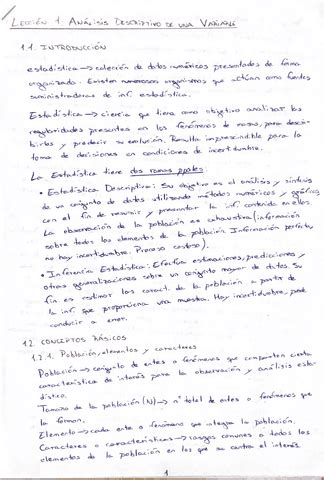 LECCIÓN 1. ANÁLISIS DESCRIPTIVO DE UNA VARIABLE
1.1. INTRODUCCIÓN
estadística → colección de datos numéricos presentados de forma
organizada. Existen numerosos organismos que actúan como fuentes
suministradoras de inf. estadística.
Estadística → ciencia que tiene como objetivo analizar las
regularidades presentes en los fenómenos de masas, para descri-
birlos y predecir su evolución. Resulta imprescindible para la
toma de decisiones en condiciones de incertidumbre.
La Estadística tiene dos ramas ppales:
• Estadística Descriptiva: Su objetivo es el análisis y síntesis
de un conjunto de datos utilizando métodos numéricos y gráficos,
con el fin de resumir y presentar la inf. contenida en ellos.
La observación de la población es exhaustiva (información
sobre todos los elementos de la población. Información perfecta,
no hay incertidumbre. Proceso costoso).
• Inferencia Estadística: Efectúa estimaciones, predicciones y
otras generalizaciones sobre un conjunto mayor de datos. Su
fin es estimar las caract. de la población a partir de
la inf. que proporciona una muestra. Hay incertidumbre, puede
conducir a error.
1.2. CONCEPTOS BÁSICOS
1.2.1. Población, elementos y caracteres
Población → conjunto de entes o fenómenos que comparten cierta
característica de interés para la observación y análisis esta-
dístico.
Tamaño de la población (N) → nº total de entes o fenómenos que
la forman.
Elemento → cada ente o fenómeno que integra la población.
Caracteres o características → rasgos comunes a todos los
elementos de la población en los que se centra el interés.
1